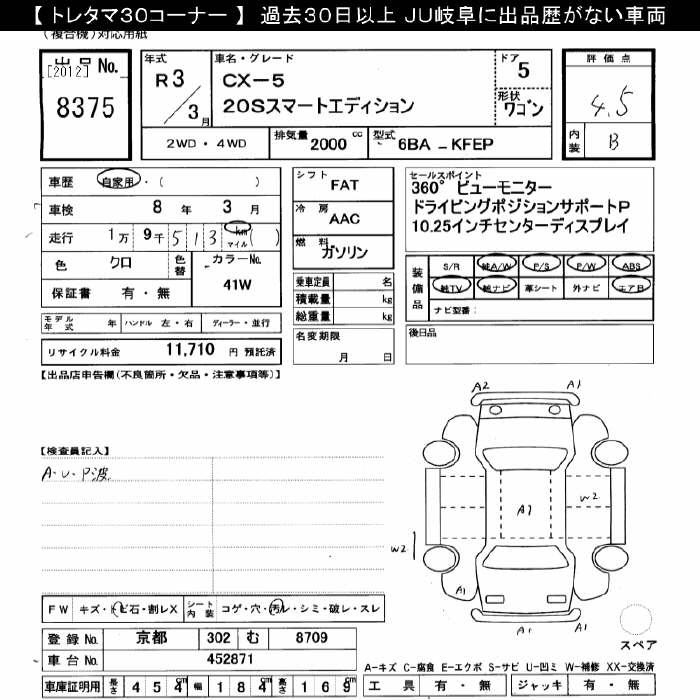 【 トレタマ30コーナー 】 過去30日以上 JU岐阜に出品歴がない車両
(複合機)対応用紙
出品 No.
[2012]
8375
年式
R 3 / 3 月
車名・グレード
CX-5
20Sスマートエディション
ドア
5
形状
ワゴン
評価点
4.5
内装 B
2WD・4WD
排気量 2000 cc
型式 6BA - KFEP
車歴 自家用・( )
車検 8 年 3 月
走行 1万 9千 5 1 3 km マイル ( )
色 クロ
色替
カラーNo.
41W
保証書 有・無
モデル年式 年 ハンドル 左・右 ディーラー・並行
リサイクル料金 11,710 円 預託済
シフト FAT
冷房 AAC
燃料 ガソリン
乗車定員 名
積載量 kg
総重量 kg
名変期限
月 日
セールスポイント
360° ビューモニター
ドライビングポジションサポートP
10.25インチセンターディスプレイ
装備品
S/R 純A/W P/S P/W ABS
純TV 純ナビ 革シート 外ナビ エアB
ナビ型番:
後日品
【出品店申告欄(不良箇所・欠品・注意事項等)】
【検査員記入】
A・U・P波
A2 A1
A1
W2
W2
A1
A1 A1
スペア
FW キズ・トビ石・割レX
シート内装 コゲ・穴・汚レ・シミ・破レ・スレ
登録 No. 京都 302 む 8709
車台 No. 452871
車庫証明用 長さ 4 5 4 cm 幅 1 8 4 cm 高さ 1 6 9 cm
A-キズ C-腐食 E-エクボ S-サビ U-凹ミ W-補修 XX-交換済
工具 有・無 ジャッキ 有・無